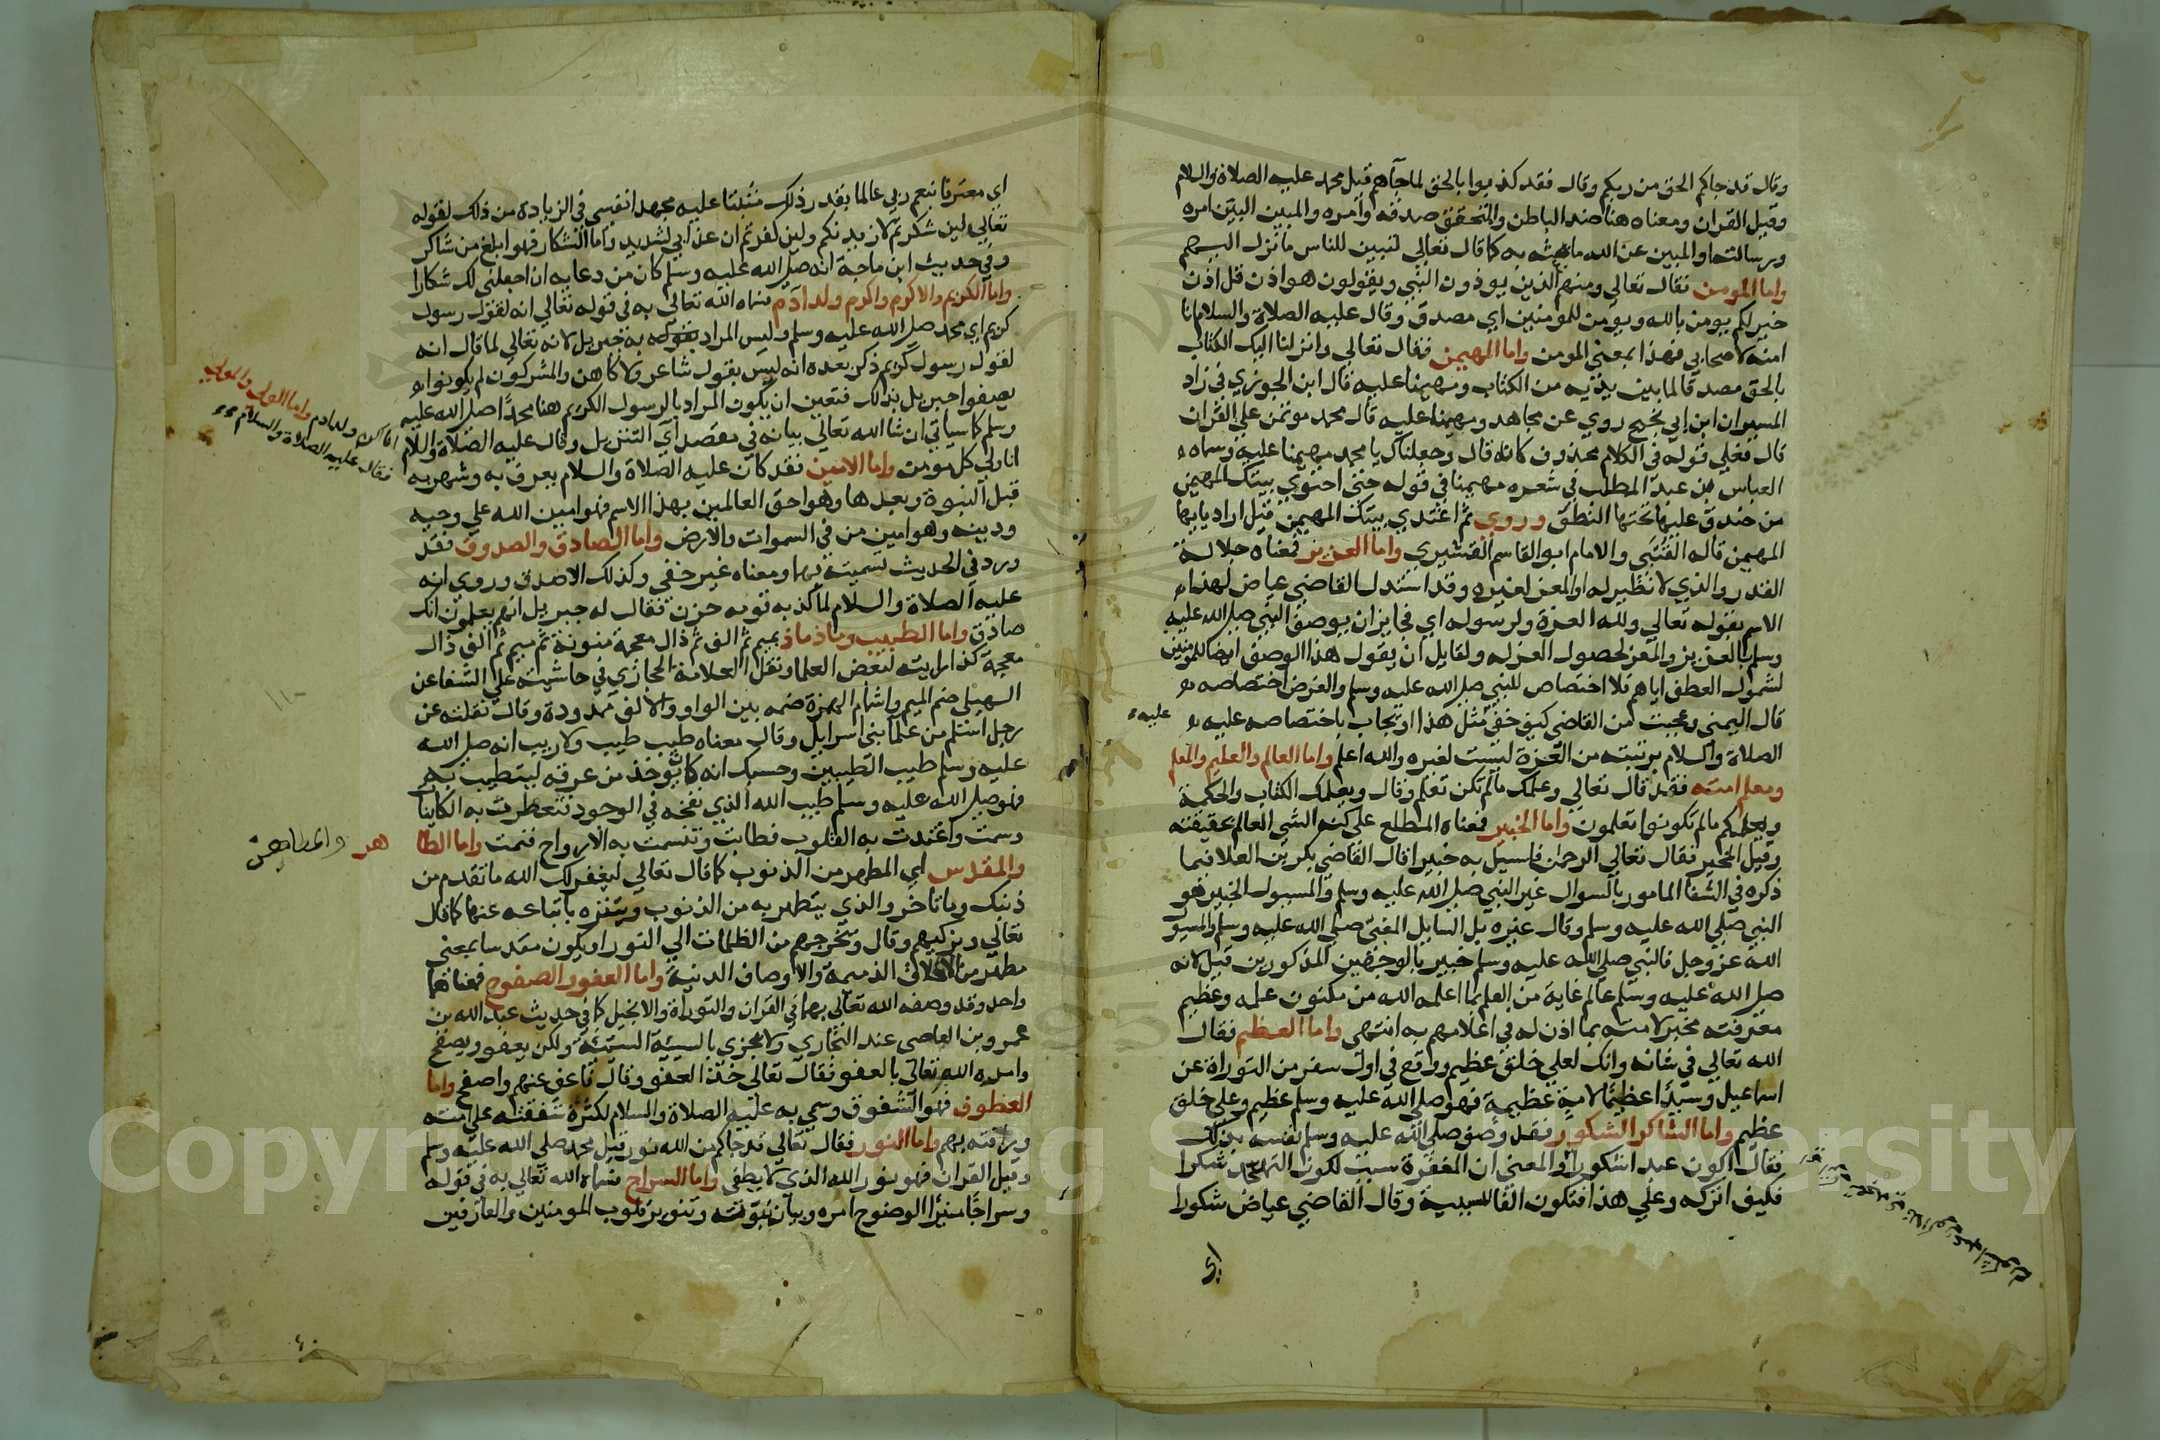 وقال قد جاكم الحق من ربكم وقال فقد كذبوا بالحق لما جآهم قيل محمد عليه الصلاة والسلام
وقيل القران ومعناه هنا ضد الباطن والمتحقق صدقه وامره والمبين البين امره
ورسالته او المبين عن الله ما بعثه به كما قال تعالي لتبين للناس ما نزل اليهم
واما المومن فقال تعالي ومنهم الذين يوذون النبي ويقولون هو اذن قل اذن
خير لكم يومن بالله ويومن للمومنين اي مصدق وقال عليه الصلاة والسلام انا
امنة لاصحابي فهذا بمعني المومن واما المهيمن فقال تعالي وانزلنا اليك الكتاب
بالحق مصدقا لما بين يديه من الكتاب ومهيمنا عليه قال ابن الجوزي في زاد
المسير ان ابن ابي نجيح روي عن مجاهد ومهيمنا عليه قال محمد موتمن علي القران
قال فعلي قوله في الكلام محذوف كانه قال وجعلناك يا محمد مهيمنا عليه وسماه
العباس بن عبد المطلب في شعره مهيمنا في قوله حتي احتوي بيتك المهيمن
من خندق علياء تحتها النطق وروي ثم اغتدي بيتك المهيمن قيل اراد يا ايها
المهيمن قاله القتبي والامام ابو القاسم القشيري واما العزيز فمعناه جلالة
القدر والذي لا نظير له او المعز لغيره وقد استدل القاضي عياض لهذا
الاسم بقوله تعالي ولله العزة ولرسوله اي فجايز ان يوصف النبي صلي الله عليه
وسلم بالعزيز والمعز لحصول العز له ولقايل ان يقول هذا الوصف ايضا للمومنين
لشمول العطف اياهم فلا اختصاص للنبي صلي الله عليه وسلم والغرض اختصاصه
قال اليمني وعجبت من القاضي كيف خفي مثل هذا او يجاب باختصاصه عليه
عليه
الصلاة والسلام برتبته من العزة ليست لغيره والله اعلم واما العالم والعليم والمعلم
ومعلم امته فقد قال تعالي وعلمك ما لم تكن تعلم وقال ويعلمك الكتاب والحكمة
ويعلمكم ما لم تكونوا تعلمون واما الخبير فمعناه المطلع علي كنه الشي العالم بحقيقته
وقيل المخبر فقال تعالي الرحمن فاسيل به خبيرا قال القاضي بكر بن العلا فيما
ذكره في الشفا المامور بالسوال غير النبي صلي الله عليه وسلم والمسيول الخبير هو
النبي صلي الله عليه وسلم وقال غيره بل السايل النبي صلي الله عليه وسلم والمسيول
الله عز وجل فالنبي صلي الله عليه وسلم خبير بالوجهين المذكورين قيل لانه
صلي الله عليه وسلم عالم غاية من العلم بما اعلمه الله من مكنون علمه وعظيم
معرفته مخبر لامته بما اذن له في اعلامهم به انتهي واما العظيم فقال
الله تعالي في شانه وانك لعلي خلق عظيم ووقع في اول سفر من التوراة عن
اسماعيل وسيلد عظيما لامة عظيمة فهو صلي الله عليه وسلم عظيم وعلي خلق
عظيم واما الشاكر الشكور فقد وصف صلي الله عليه وسلم نفسه بذلك
فقال افلا اكون عبدا شكورا والمعني ان المغفرة سبب لكون التهجد شكرا
فكيف اتركه وعلي هذا فتكون الفا للسببية وقال القاضي عياض شكورا
اي
اي معترفا بنعم ربي عالما بقدر ذلك مثنيا عليه مجهدا نفسي في الزيادة من ذلك لقوله
تعالي لين شكرتم لازيدنكم ولين كفرتم ان عذابي لشديد واما الشكار فهو ابلغ من شاكر
وفي حديث ابن ماجة انه صلي الله عليه وسلم كان من دعايه ان اجعلني لك شكارا
واما الكريم والاكرم واكرم ولد ادم فسماه الله تعالي به في قوله تعالي انه لقول رسول
كريم اي محمد صلي الله عليه وسلم وليس المراد بقوله به جبريل لانه تعالي لما قال انه
لقول رسول كريم ذكر بعده انه ليس بقول شاعر ولا كاهن والمشركون لم يكونوا
يصفوا جبريل بذلك فتعين ان يكون المراد بالرسول الكريم هنا محمدا صلي الله عليه
وسلم كما سياتي ان شا الله تعالي بيانه في مقصد آي التنزيل وقال عليه الصلاة والسلام
انا اكرم ولد ادم واما الولي والمولي
فقال عليه الصلاة والسلام
انا ولي كل مومن واما الامين فقد كان عليه الصلاة والسلام يعرف به وشهر به
قبل النبوة وبعدها وهو احق العالمين بهذا الاسم فهو امين الله علي وحيه
ودينه وهو امين من في السموات والارض واما الصادق والصدوق فقد
ورد في الحديث تسميته بهما ومعناه غير خفي وكذلك الاصدق وروي انه
عليه الصلاة والسلام لما كذبه قومه حزن فقال له جبريل انهم يعلمون انك
صادق واما الطبيب وماذماذ بميم ثم الف ثم ذال معجمة منونة ثم ميم ثم الف ذال
معجمة كذا رايته لبعض العلما ونقل العلامة الحجازي في حاشيته علي الشفا عن
السهيلي ضم الميم واشمام الهمزة ضمه بين الواو والالف ممدودة وقال نقلته عن
رجل اسلم من علما بني اسرايل وقال معناه طيب طيب ولا ريب انه صلي الله
عليه وسلم طيب الطيبين وحسبك انه كان يوخذ من عرقه ليتطيب به
فهو صلي الله عليه وسلم طيب الله الذي نفخه في الوجود فتعطرت به الكاينات
وسمت واغتذت به القلوب فطابت وتنسمت به الارواح فنمت واما الطاهر والمطهر
والمقدس اي المطهر من الذنوب كما قال تعالي ليغفر لك الله ما تقدم من
ذنبك وما تاخر والذي يتطهر به من الذنوب ويتنزه باتباعه عنها كما قال
تعالي ويزكيهم وقال ويخرجهم من الظلمات الي النور او يكون مقدسا بمعني
مطهر من الاخلاق الذميمة والاوصاف الدنية واما العفو والصفوح فمعناهما
واحد وقد وصفه الله تعالي بهما في القران والتوراة والانجيل كما في حديث عبد الله بن
عمرو بن العاصي عند البخاري ولا يجزي بالسيئة السيئة ولكن يعفو ويصفح
وامره الله تعالي بالعفو فقال تعالي خذ العفو وقال فاعف عنهم واصفح واما
العطوف فهو الشفوق وسمي به عليه الصلاة والسلام لكثرة شفقته علي امته
ورافته بهم واما النور فقال تعالي قد جاكم من الله نور قيل محمد صلي الله عليه وسلم
وقيل القران فهو نور الله الذي لا يطفي واما السراج فسماه الله تعالي به في قوله
وسراجا منيرا لوضوح امره وبيان نبوته وتنوير قلوب المومنين والعارفين
Copyr g S ersity